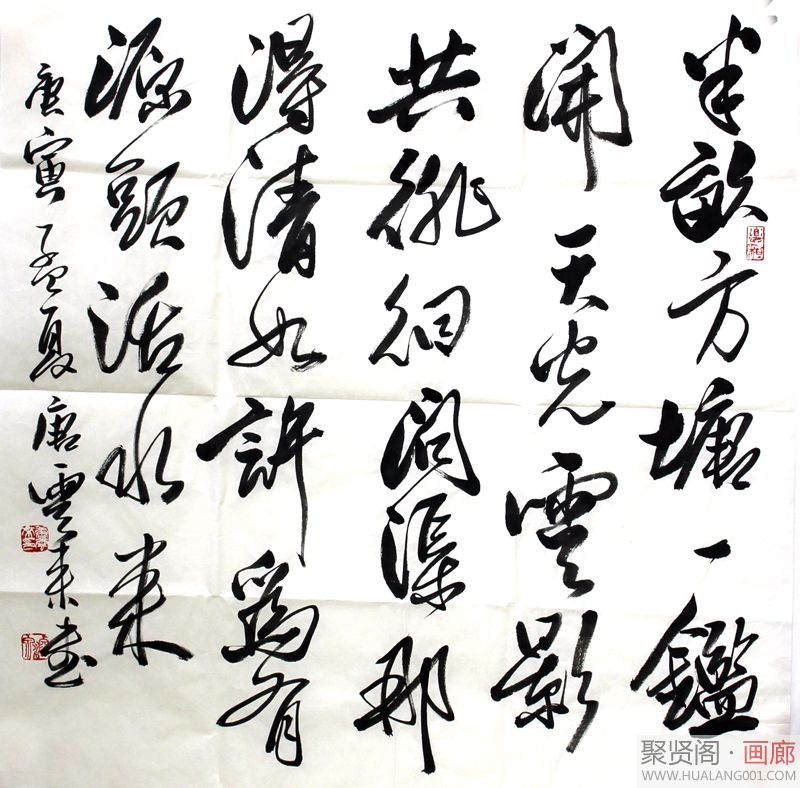 半畝方塘一鑑
開天光雲影
共徘徊問渠那
得清如許為有
源頭活水来
庚寅孟夏唐雲来書
聚贤阁·画廊
WWW.HUALANG001.COM